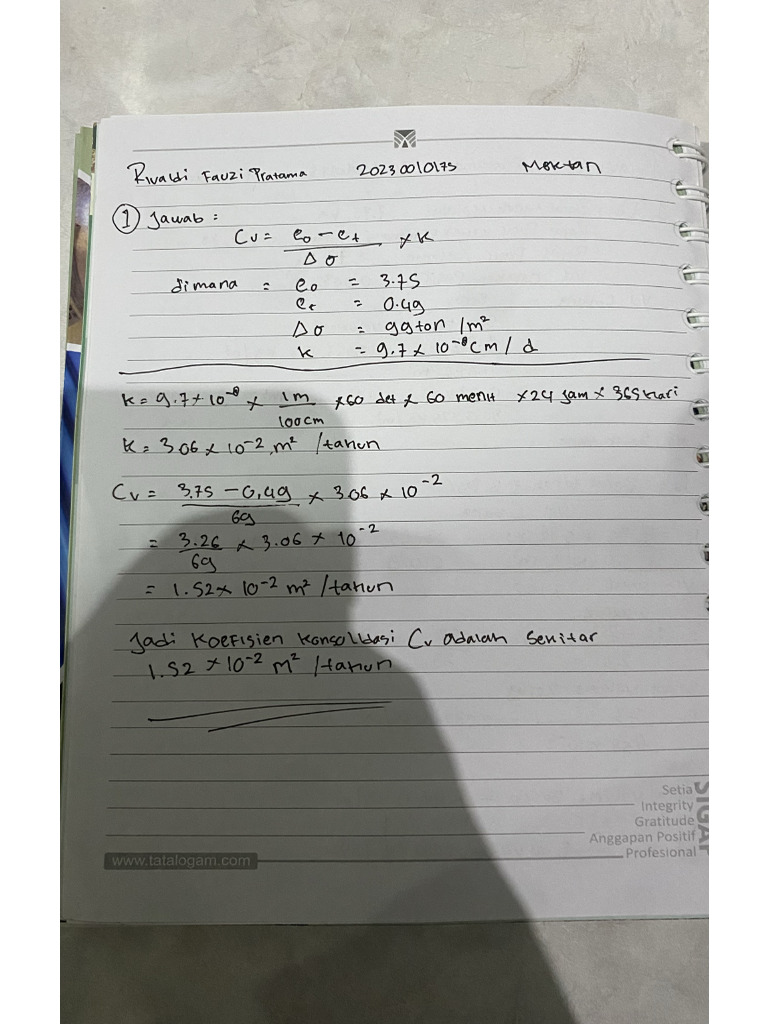 Rivaldi Fauzi Pratama 20230010175 Mektan
1 Jawab :
Cv = e₀ - et / Δσ × k
dimana = e₀ = 3.75
et = 0.49
Δσ = 99 ton / m²
k = 9.7 × 10⁻⁸ cm / d
k = 9.7 × 10⁻⁸ × 1m / 100cm × 60 det × 60 menit × 24 jam × 365 hari
k = 3.06 × 10⁻² m² / tahun
Cv = 3.75 - 0,49 / 69 × 3.06 × 10⁻²
= 3.26 / 69 × 3.06 × 10⁻²
= 1.52 × 10⁻² m² / tahun
Jadi Koefisien Konsolidasi Cv adalah Sekitar
1.52 × 10⁻² m² / tahun
Setia
Integrity
Gratitude
Anggapan Positif
Profesional
SIGAP
www.tatalogam.com